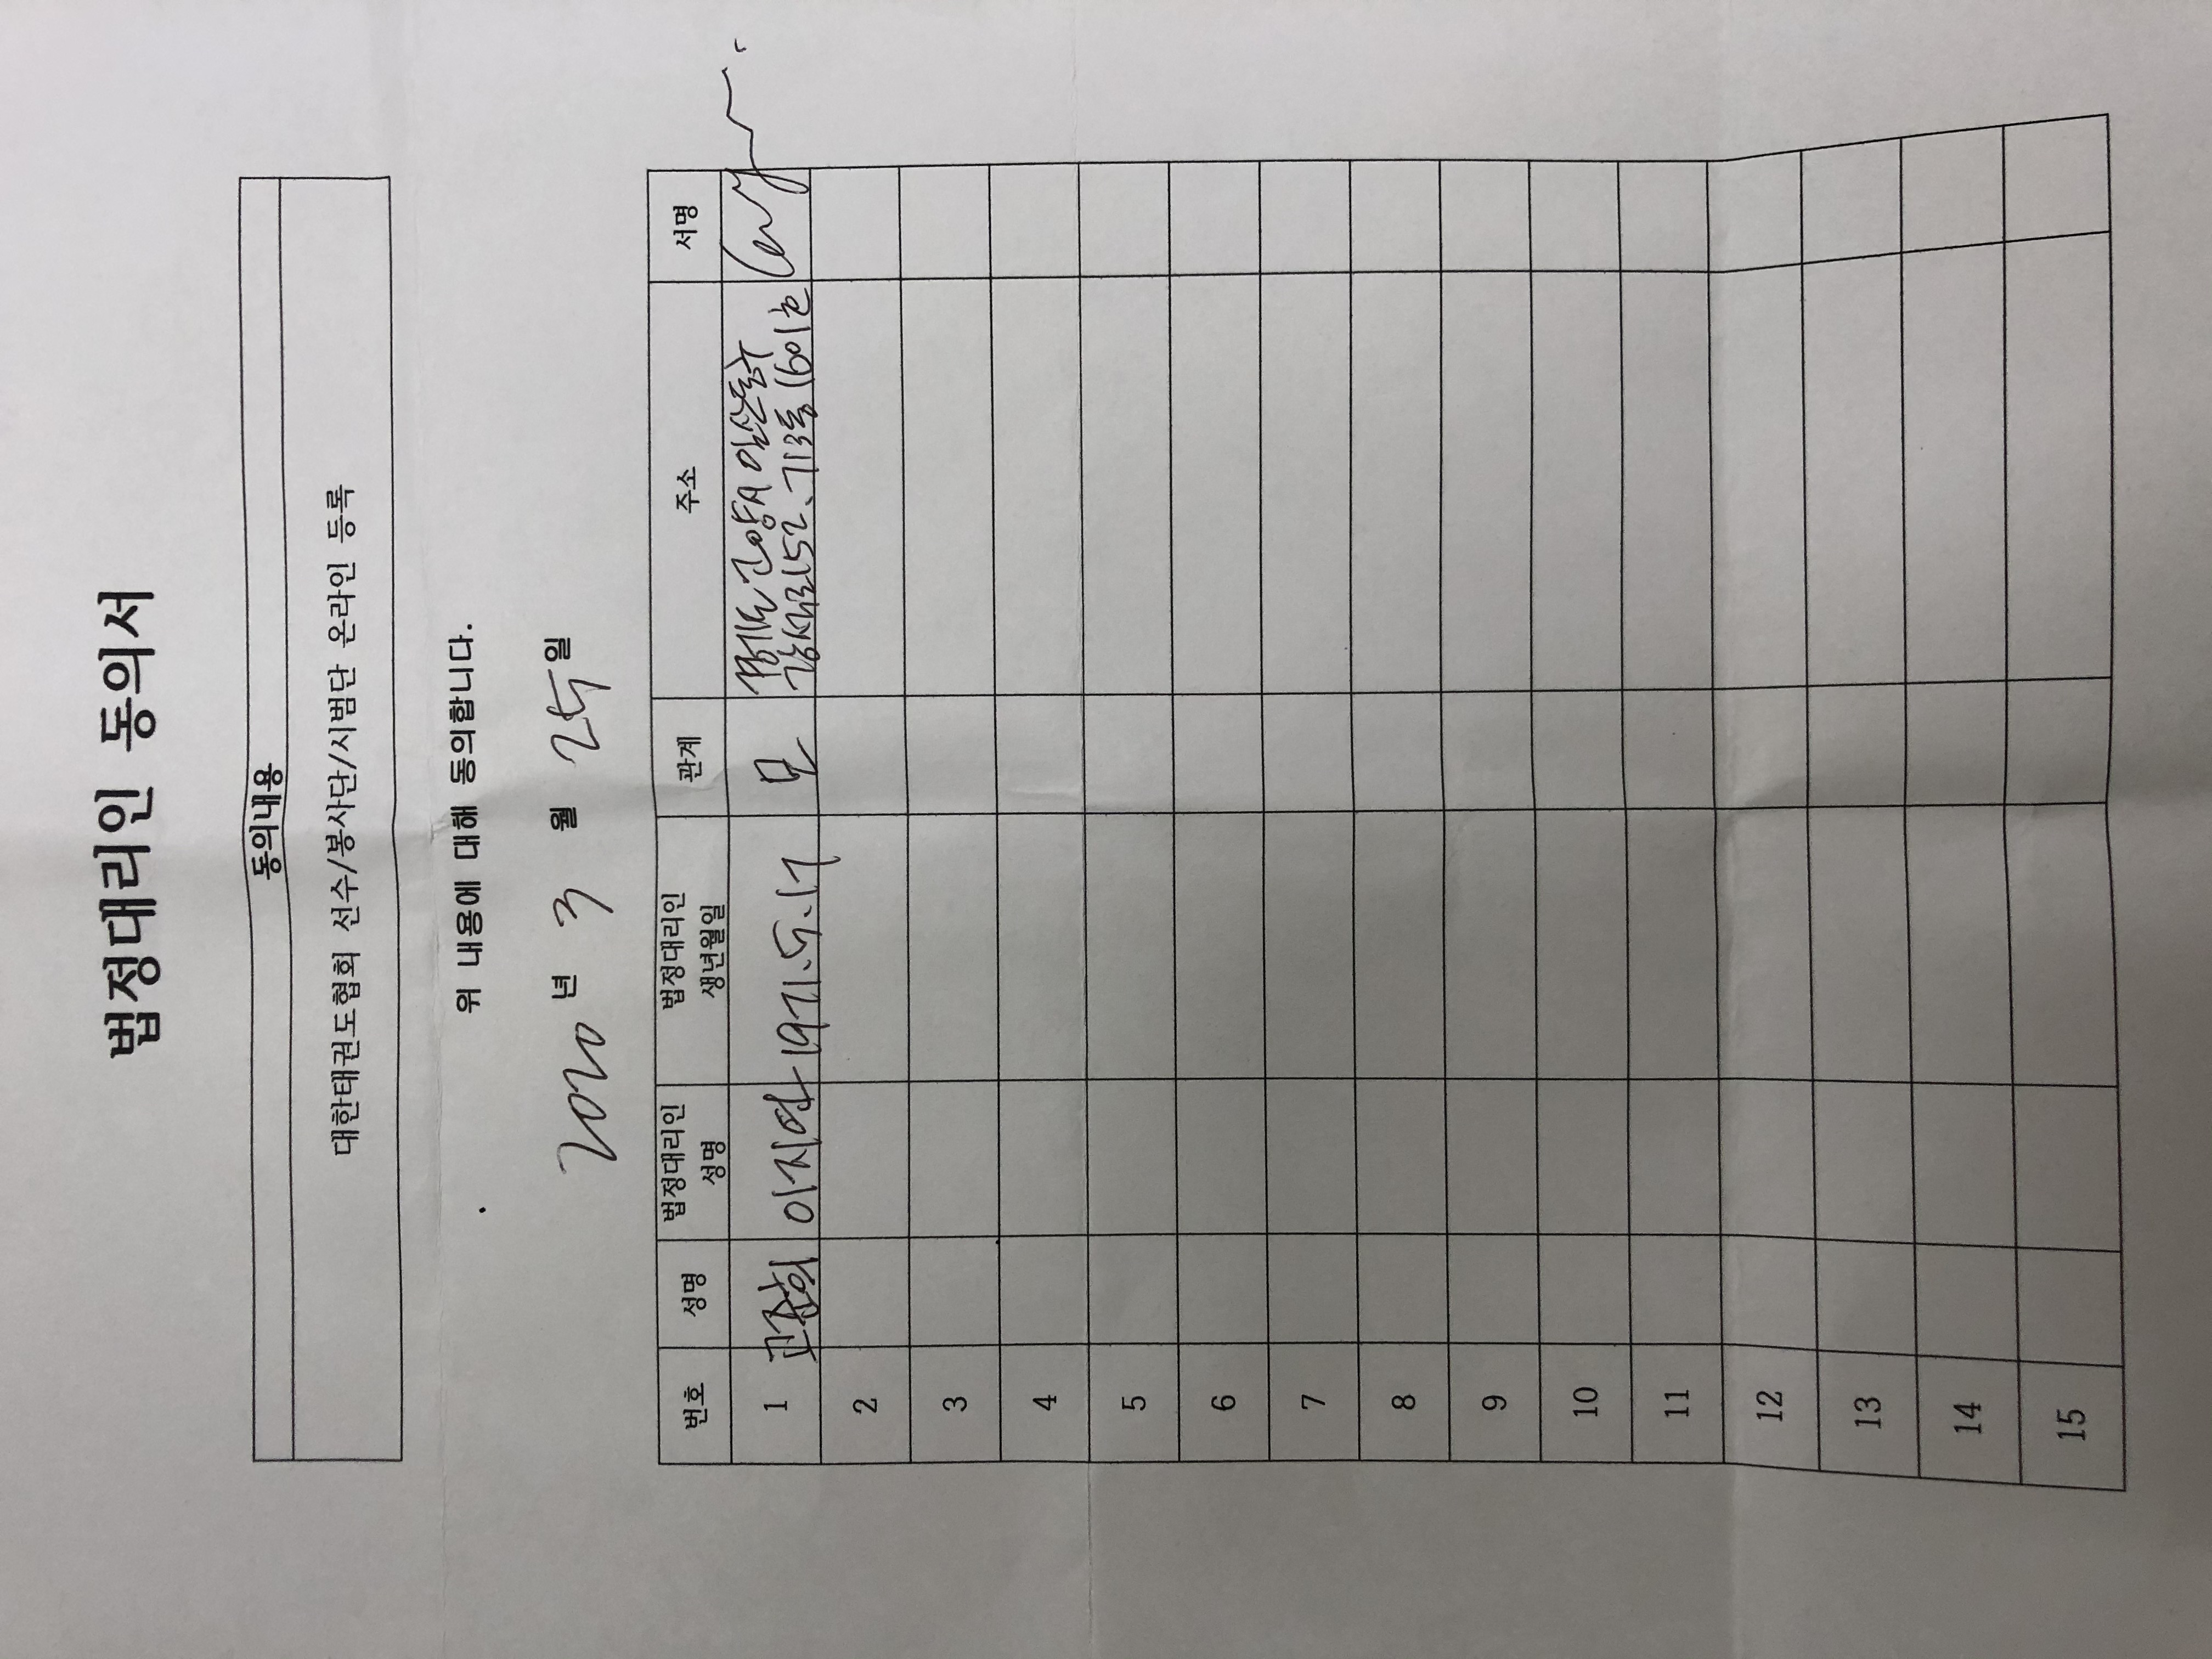 법정대리인 동의서
동의내용
대한태권도협회 선수/봉사단/시범단 온라인 등록
위 내용에 대해 동의합니다.
2020 년 3 월 25 일
번호 성명 법정대리인 성명 법정대리인 생년월일 관계 주소 서명
1 이지연 1971.5.17 모 경기도 고양시 일산동구
강석로152. 713동 1601호
2
3
4
5
6
7
8
9
10
11
12
13
14
15